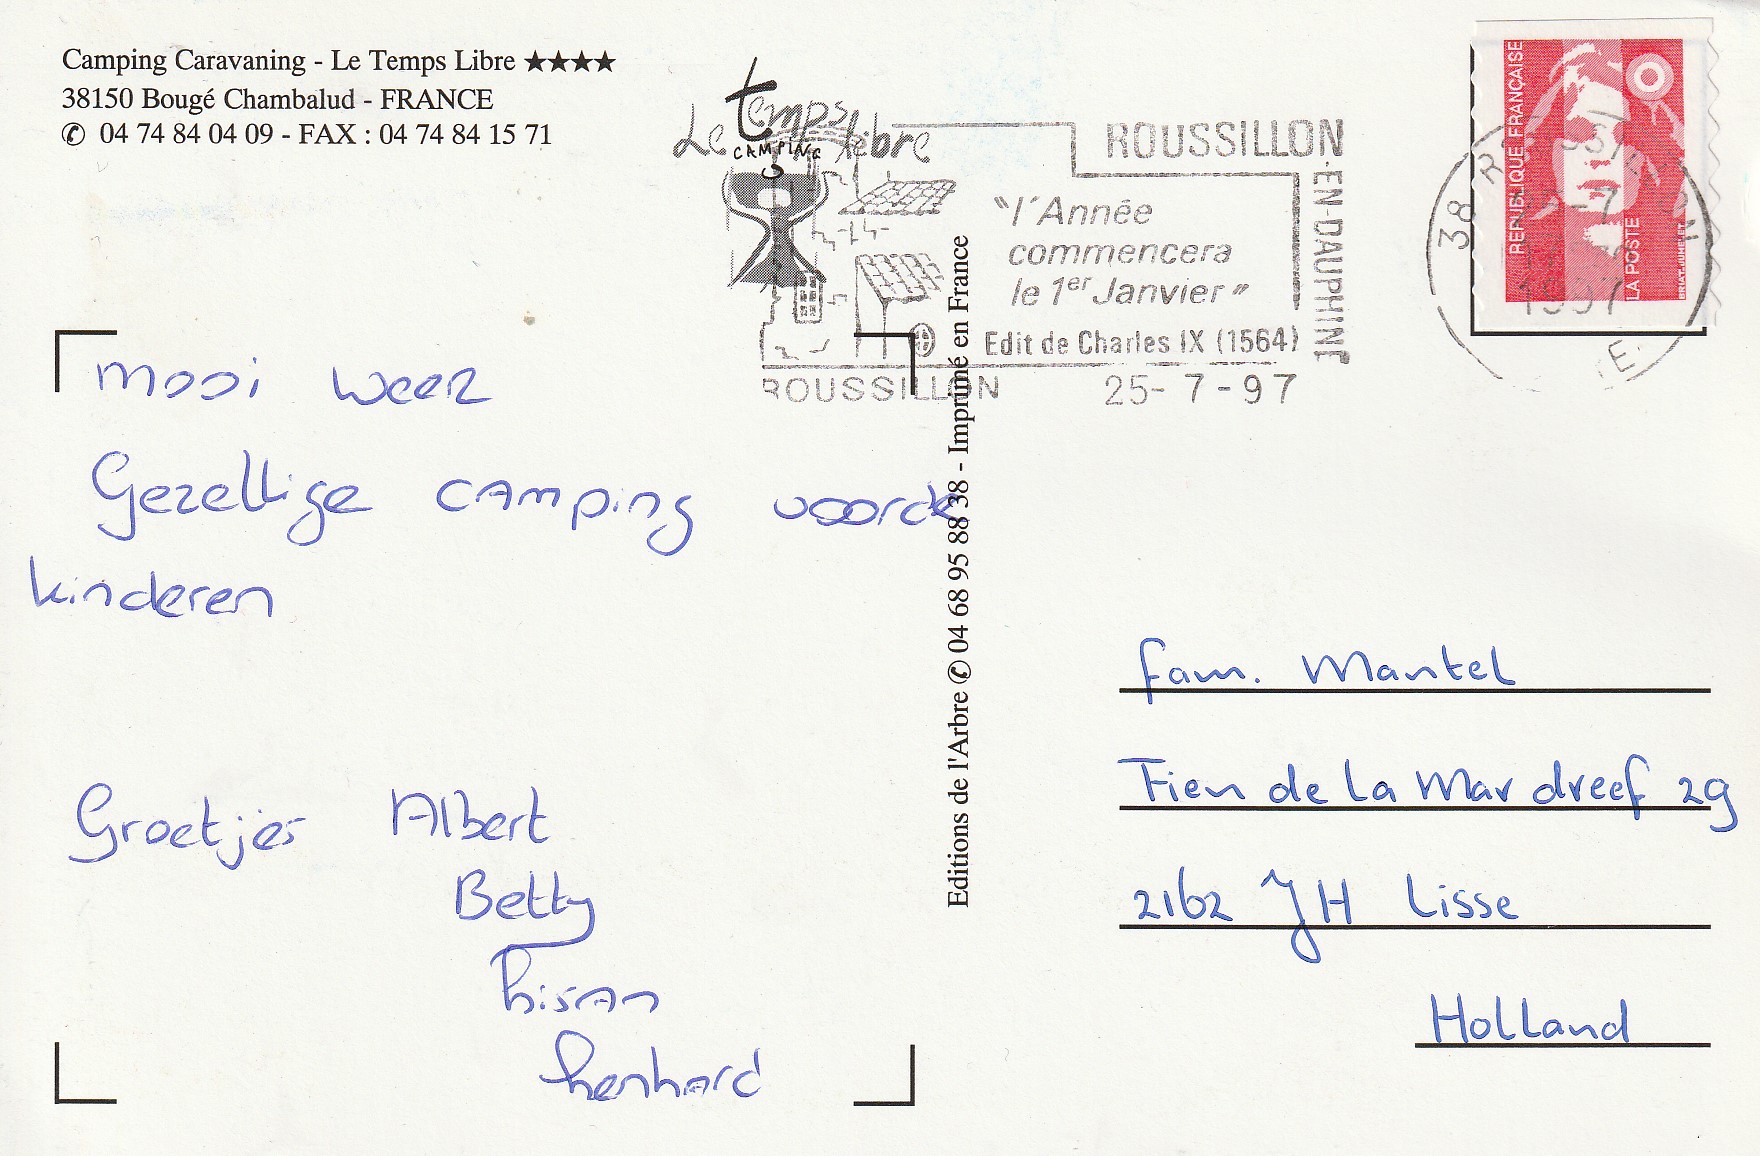 Camping Caravaning - Le Temps Libre ★★★★
38150 Bougé Chambalud - FRANCE
✆ 04 74 84 04 09 - FAX : 04 74 84 15 71
Le temps libre
CAMPING
ROUSSILLON
EN DAUPHINE
"l'Année
commencera
le 1er Janvier"
Edit de Charles IX (1564)
ROUSSILLON 25-7-97
REPUBLIQUE FRANÇAISE
LA POSTE
38
1997
mooi weer
Gezellige camping voor de
kinderen
Groetjes Albert
Betty
Editions de l'Arbre ✆ 04 68 95 88 38 - Imprimé en France
fam. Mantel
Fien de la Mar dreef 29
2162 JH Lisse
Holland